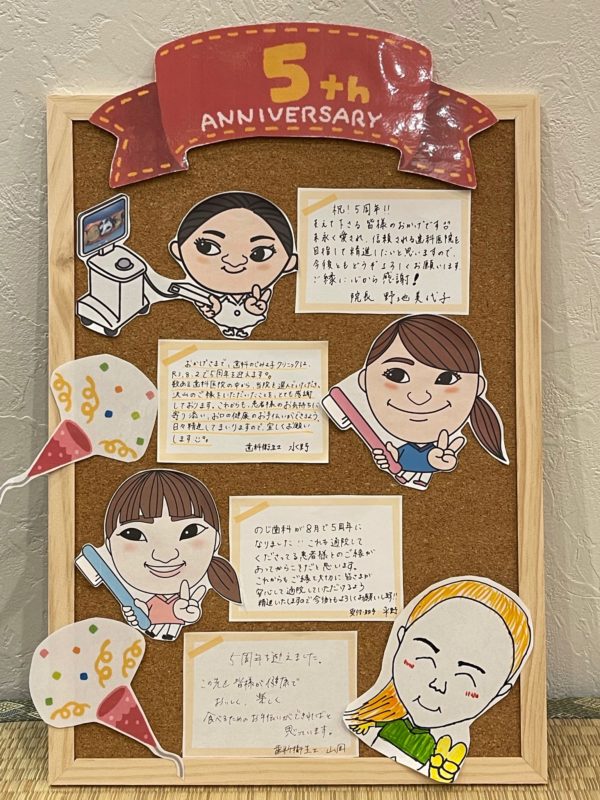 5th
ANNIVERSARY
祝!5周年!!
そえて下さる皆様のおかげです
末永く愛され、信頼される歯科医院を
目指して精進したいと思いますので、
今後ともどうぞよろしくお願いします
ご縁に心から感謝!
院長 野地美代子
おかげさまで、歯科のじみよ子クリニックは、
R3,8,2で5周年を迎えます。
数ある歯科医院の中から、当院を選んでいただき、
沢山のご縁をいただいたことを、とても感謝
しております。これからも、患者様のお気持ちに
寄り添い、お口の健康のお手伝いができるよう、
日々精進してまいりますので、宜しくお願い
します
歯科衛生士 水野
のじ歯科が8月で5周年に
なりました これも通院して
くださってる患者様とのご縁が
あってからこそだと思います。
これからもご縁を大切に皆さまが
安心して通院していただけるよう
精進いたしますので今後ともよろしくお願いします!!
受付・助手 平野
5周年を迎えました。
この先も皆様が健康で
おいしく、楽しく
食べるためのお手伝いができればと
思っています。
歯科衛生士 山岡